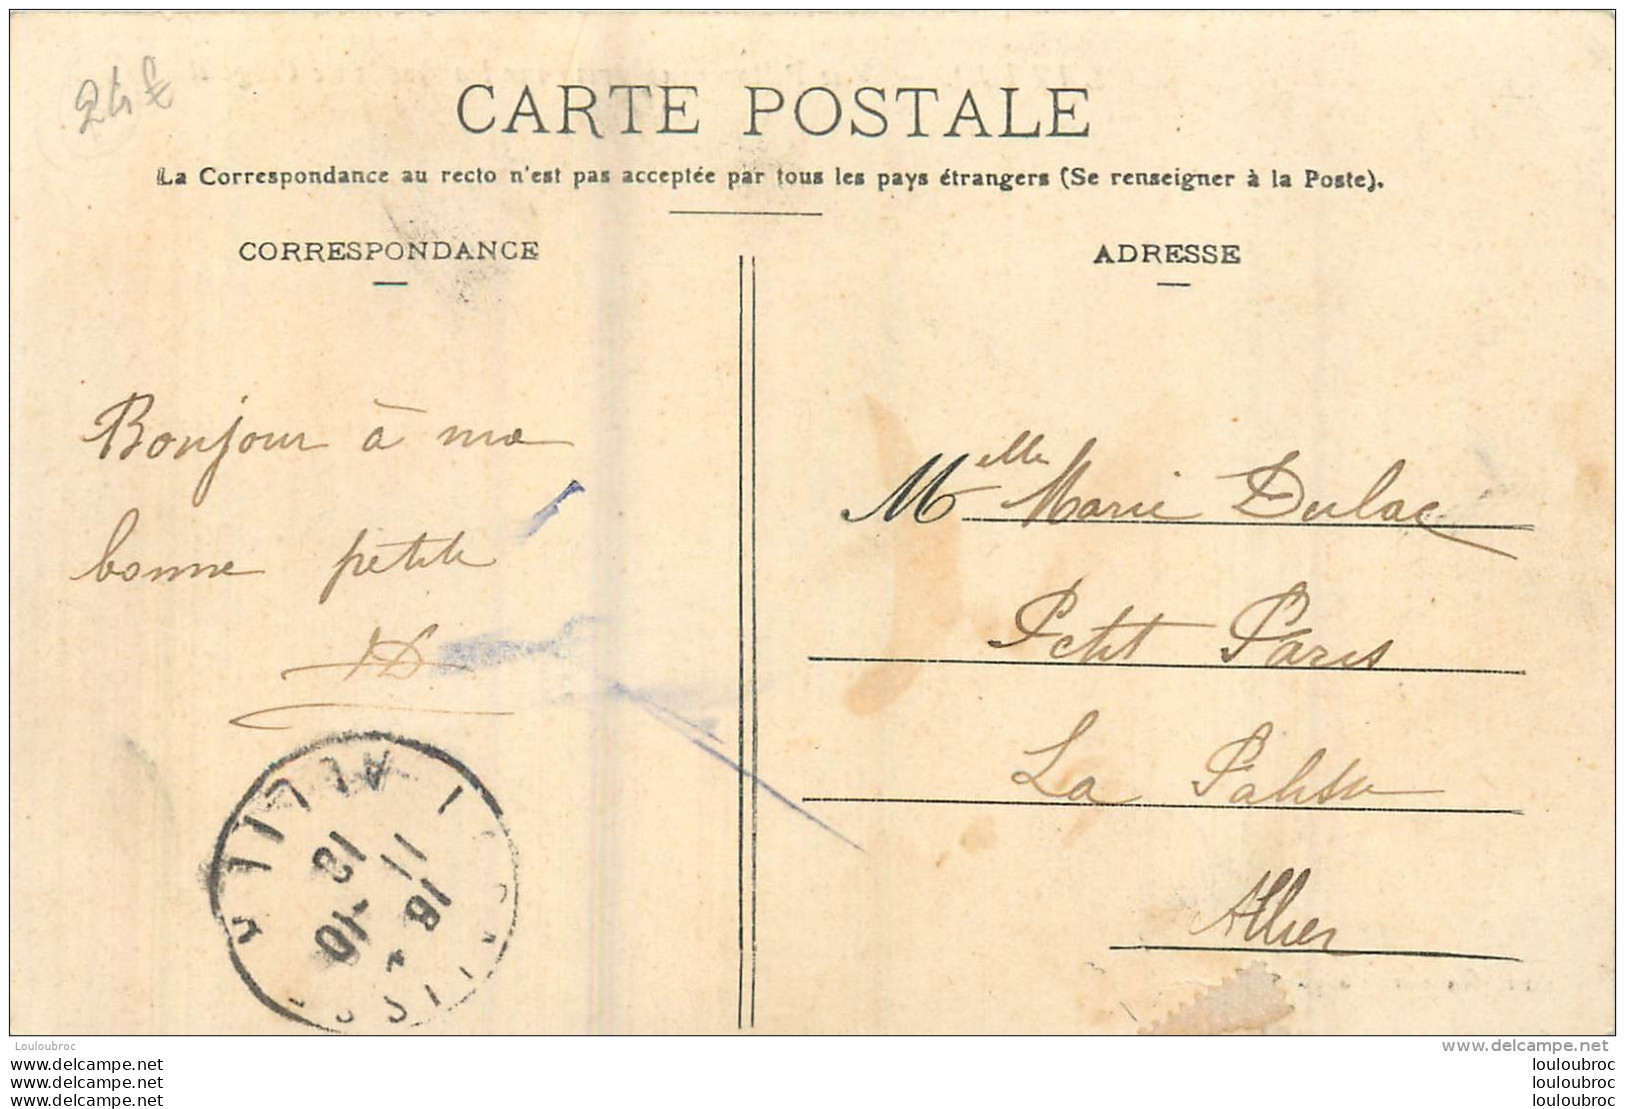 CARTE POSTALE
La Correspondance au recto n'est pas acceptée par tous les pays étrangers (Se renseigner à la Poste).
CORRESPONDANCE
ADRESSE
Bonjour à ma
bonne petite
Melle Marie Dulac
Petit Paris
La Palisse
Allier
Louloubroc
www.delcampe.net
louloubroc.net
louloubroc.net
louloubroc.net
louloubroc
louloubroc
louloubroc